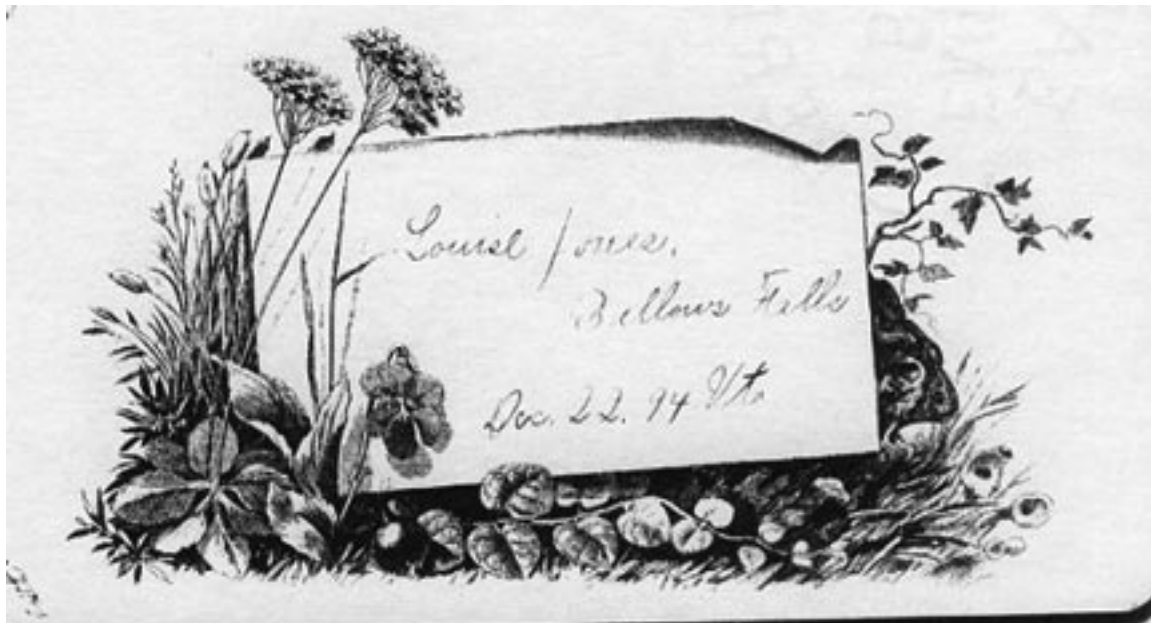 Louise Jones,
Bellows Falls
Dec. 22. 94 Vt.